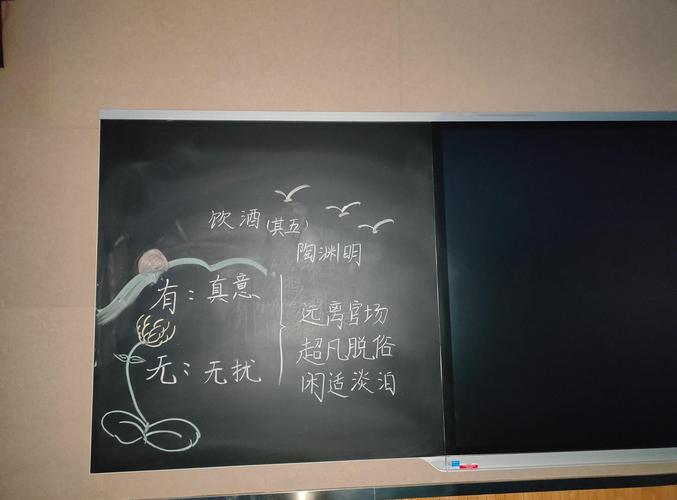 饮酒(其五)
陶渊明
有：真意
无：无扰
远离官场
超凡脱俗
闲适淡泊